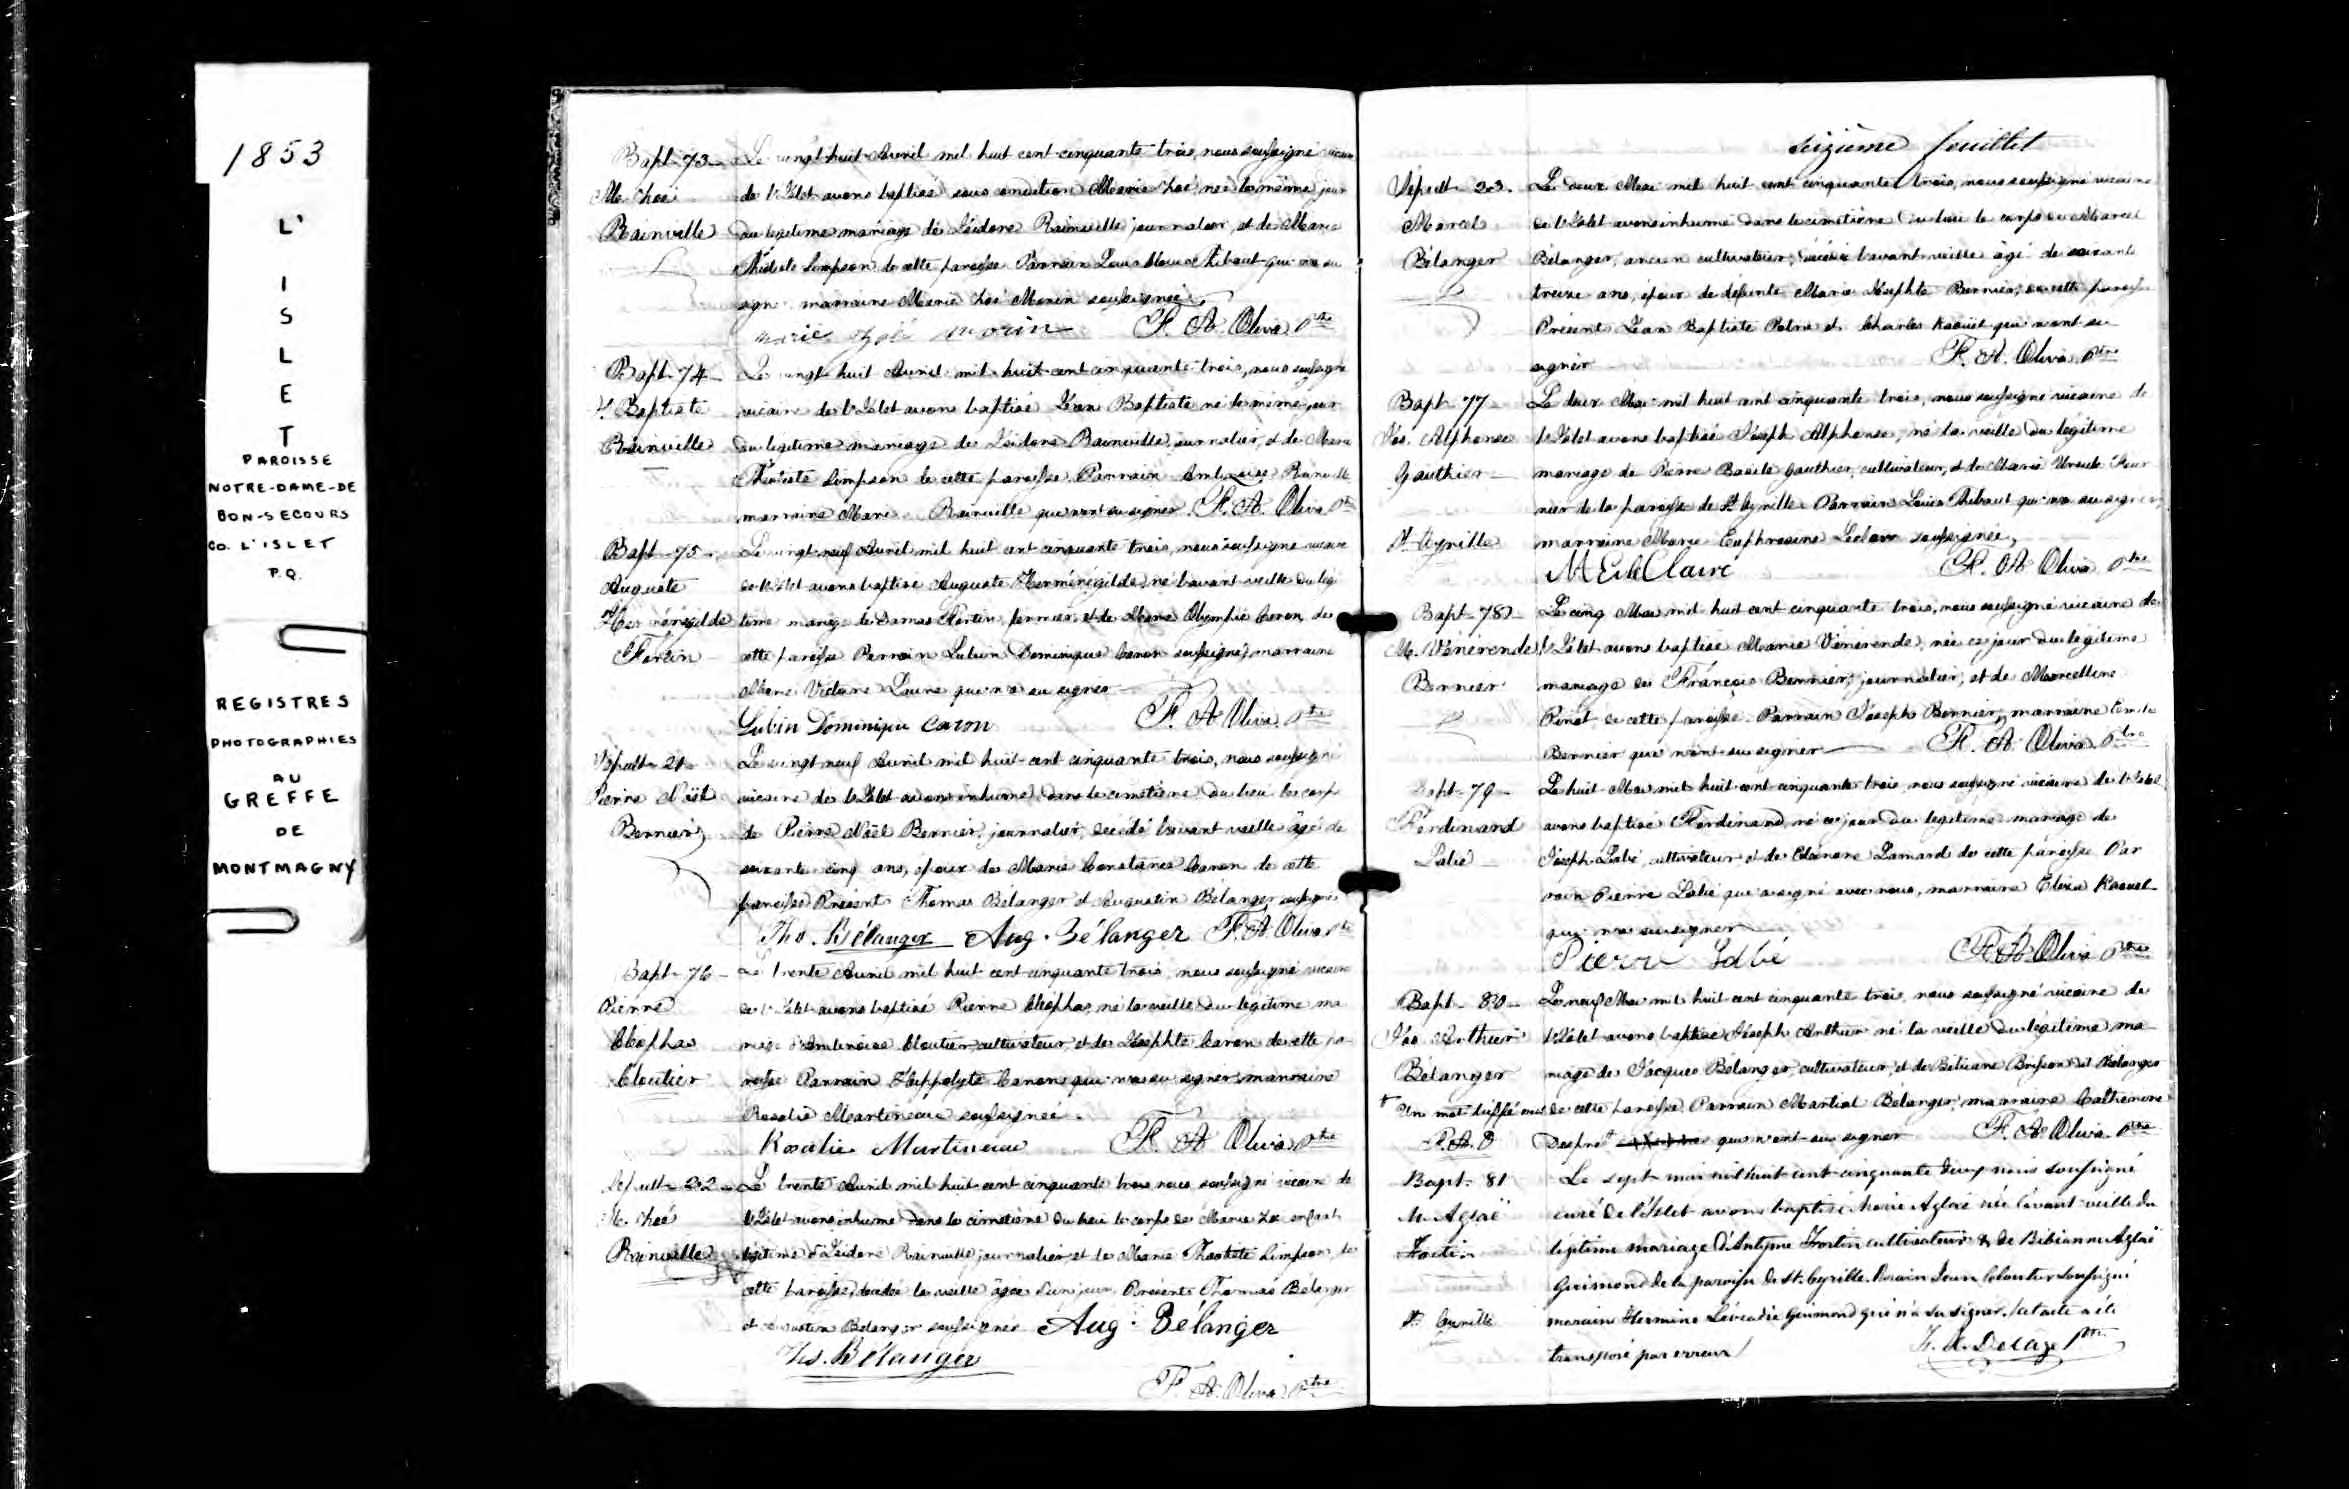 1853
L'
I
S
L
E
T
PAROISSE
NOTRE-DAME-DE
BON-SECOURS
CO. L'ISLET
P.Q.
REGISTRES
PHOTOGRAPHIES
AU
GREFFE
DE
MONTMAGNY
Bapt. 73
M. Zoé
Rainville
Le vingt huit Avril mil huit cent cinquante trois, nous soussigné vicaire
de l'Islet avons baptisé sous condition Marie Zoé née le même jour
du legitime mariage de Isidore Rainville journalier, et de Marie
Théotiste Simpson de cette paroisse Parrain Louis Thibaut qui n'a su
signer marraine Marie Zoé Morin soussignée
Marie Zoé Morin F. A. Oliva Ptre
Bapt. 74
J. Baptiste
Rainville
Le vingt huit Avril mil huit cent cinquante trois, nous soussigné
vicaire de l'Islet avons baptisé Jean Baptiste né le même jour
du legitime mariage de Isidore Rainville, journalier, et de Marie
Théotiste Simpson de cette paroisse Parrain Ambroise Rainville
marraine Marie Rainville qui n'ont su signer F. A. Oliva Ptre
Bapt. 75
Auguste
Herménégilde
Fortin
Le vingt neuf Avril mil huit cent cinquante trois, nous soussigné vicaire
de l'Islet avons baptisé Auguste Herménégilde, né l'avant-veille du légi
time mariage de Damas Fortin fermier, et de Marie Olympie Caron de
cette paroisse Parrain Lubin Dominique Caron soussigné, marraine
Marie Victoire qui n'a su signer
Lubin Dominique Caron F. A. Oliva Ptre
Sépult. 21
Pierre Noël
Bernier
Le vingt neuf Avril mil huit cent cinquante trois, nous soussigné
vicaire de l'Islet avons inhumé dans le cimetière du lieu le corps
de Pierre Noël Bernier, journalier, décédé l'avant veille âgé de
soixante cinq ans, époux de Marie Constance Caron de cette
paroisse Présent Thomas Bélanger et Augustin Bélanger soussignés
Tho. Bélanger Aug. Bélanger F. A. Oliva Ptre
Bapt. 76
Pierre
Cléophas
Cloutier
Le trente Avril mil huit cent cinquante trois, nous soussigné vicaire
de l'Islet avons baptisé Pierre Cléophas, né la veille du legitime ma
riage d'Ambroise Cloutier cultivateur, et de Josephte Caron de cette pa
roisse Parrain Hippolyte Caron qui n'a su signer marraine
Rosalie Martineau soussignée
Rosalie Martineau F. A. Oliva Ptre
Sépult. 22
M. Zoé
Rainville
Le trente Avril mil huit cent cinquante trois nous soussigné vicaire de
l'Islet avons inhumé dans le cimetière du lieu le corps de Marie Zoé enfant
légitime d'Isidore Rainville, journalier et de Marie Théotiste Simpson, de
cette paroisse, décédée la veille âgée d'un jour. Présents Thomas Bélanger
et Augustin Bélanger soussignés Aug. Bélanger
Ths. Bélanger
F. A. Oliva Ptre
Seizième feuillet
Sépult. 23.
Marcel
Bélanger
Le deux Mai mil huit cent cinquante trois, nous soussigné vicaire
de l'Islet avons inhumé dans le cimetière du lieu le corps de Marcel
Bélanger, ancien cultivateur, décédé l'avant-veille âgé de soixante
treize ans, époux de défunte Marie Josephte Bernier, de cette paroisse
Présent Jean Baptiste et Charles Kaouet qui n'ont su
signer F. A. Oliva Ptre
Bapt. 77
Jos. Alphonse
Gauthier
St Cyrille
Le deux Mai mil huit cent cinquante trois, nous soussigné vicaire de
l'Islet avons baptisé Joseph Alphonse, né la veille du légitime
mariage de Pierre Basile Gauthier, cultivateur, et de Marie Ursule Four
nier de la paroisse de St Cyrille Parrain Louis Thibaut qui n'a su signer
marraine Marie Euphrosine Leclerc soussignée,
M E leClaire F. A. Oliva Ptre
Bapt. 78
M. Vénérende
Bernier
Le cinq Mai mil huit cent cinquante trois, nous soussigné vicaire de
l'Islet avons baptisé Marie Vénérende, née ce jour du légitime
mariage de François Bernier, journalier, et de Marcelline
de cette paroisse. Parrain Joseph Bernier, marraine
Bernier qui n'ont su signer F. A. Oliva Ptre
Bapt. 79
Ferdinand
Labé
Le huit Mai mil huit cent cinquante trois, nous soussigné vicaire de l'Islet
avons baptisé Ferdinand, né ce jour du légitime mariage de
Joseph Labé, cultivateur et de Eléonore Lamard de cette paroisse Par
rain Pierre Labé qui a signé avec nous, marraine Eliza Kaouet
qui n'a su signer
Pierre Labé F. A. Oliva Ptre
Bapt. 80
Jos. Arthur
Bélanger
† Un mot biffé nul
F. A. O
Le neuf Mai mil huit cent cinquante trois, nous soussigné vicaire de
l'Islet avons baptisé Joseph Arthur né la veille du légitime ma
riage de Jacques Bélanger, cultivateur, et de Bélanger
de cette paroisse Parrain Martial Bélanger, marraine Catherine
Després † qui n'ont su signer F. A. Oliva Ptre
Bapt. 81
M. Aglaé
Fortin
St Cyrille
Le sept mai mil huit cent cinquante deux nous soussigné
curé de l'Islet avons baptisé Marie Aglaé née l'avant veille du
légitime mariage d'Antyme Fortin cultivateur & de Bibianne Aglaé
Guimond de la paroisse de St. Cyrille. Parain Jean Cloutier soussigné
maraine Hermine Léocadie Guimond qui n'a su signer. /cet acte a été
transposé par erreur/ F. X. Delage Ptre